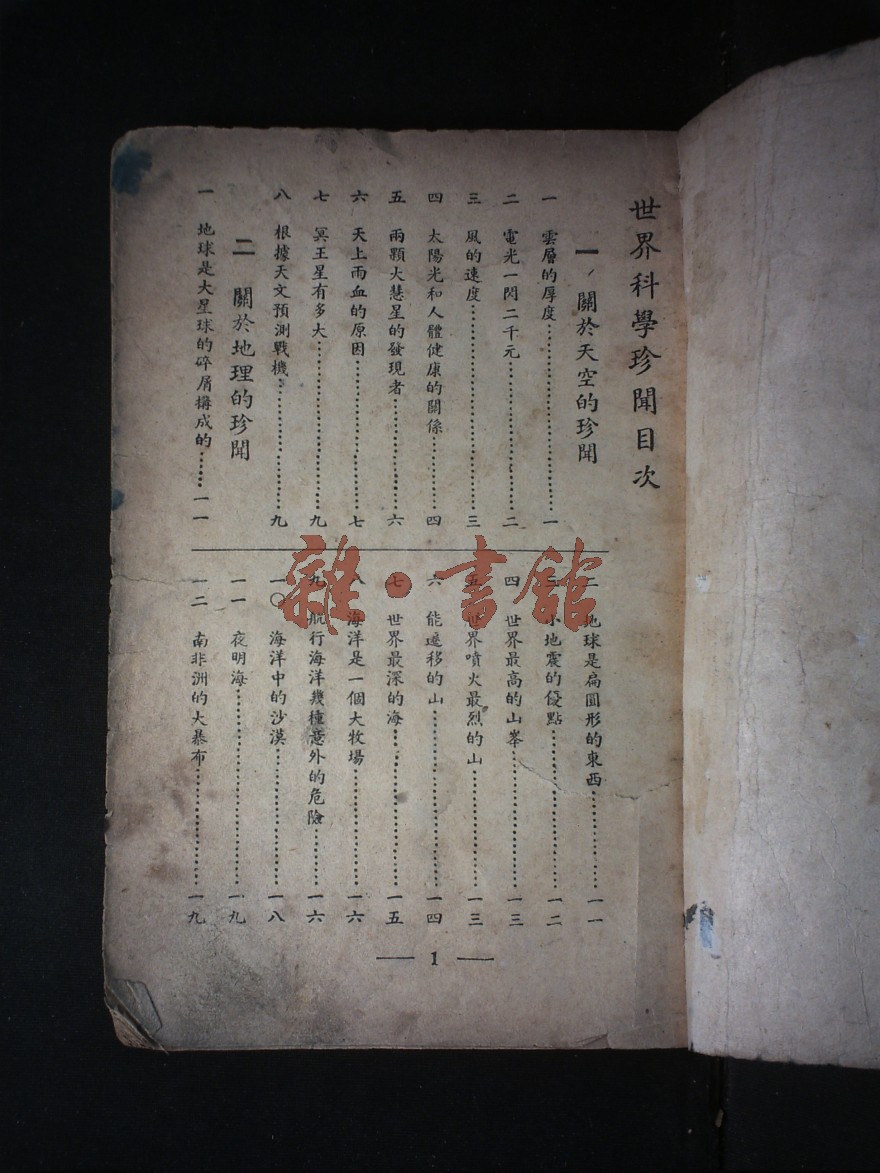 世界科學珍聞目次
一、關於天空的珍聞
一 雲層的厚度……一
二 電光一閃二千元……二
三 風的速度……三
四 太陽光和人體健康的關係……四
五 兩顆大慧星的發現者……六
六 天上雨血的原因……七
七 冥王星有多大……九
八 根據天文預測戰機……九
二 關於地理的珍聞
一 地球是大星球的碎屑搆成的……一一
二 地球是扁圓形的東西……一一
三 小地震的優點……一二
四 世界最高的山峯……一三
五 世界噴火最烈的山……一三
六 能遷移的山……一四
七 世界最深的海……一五
八 海洋是一個大牧場……一六
九 航行海洋幾種意外的危險……一六
一〇 海洋中的沙漠……一八
一一 夜明海……一九
一二 南非洲的大暴布……一九
— 1 —
雜·書館